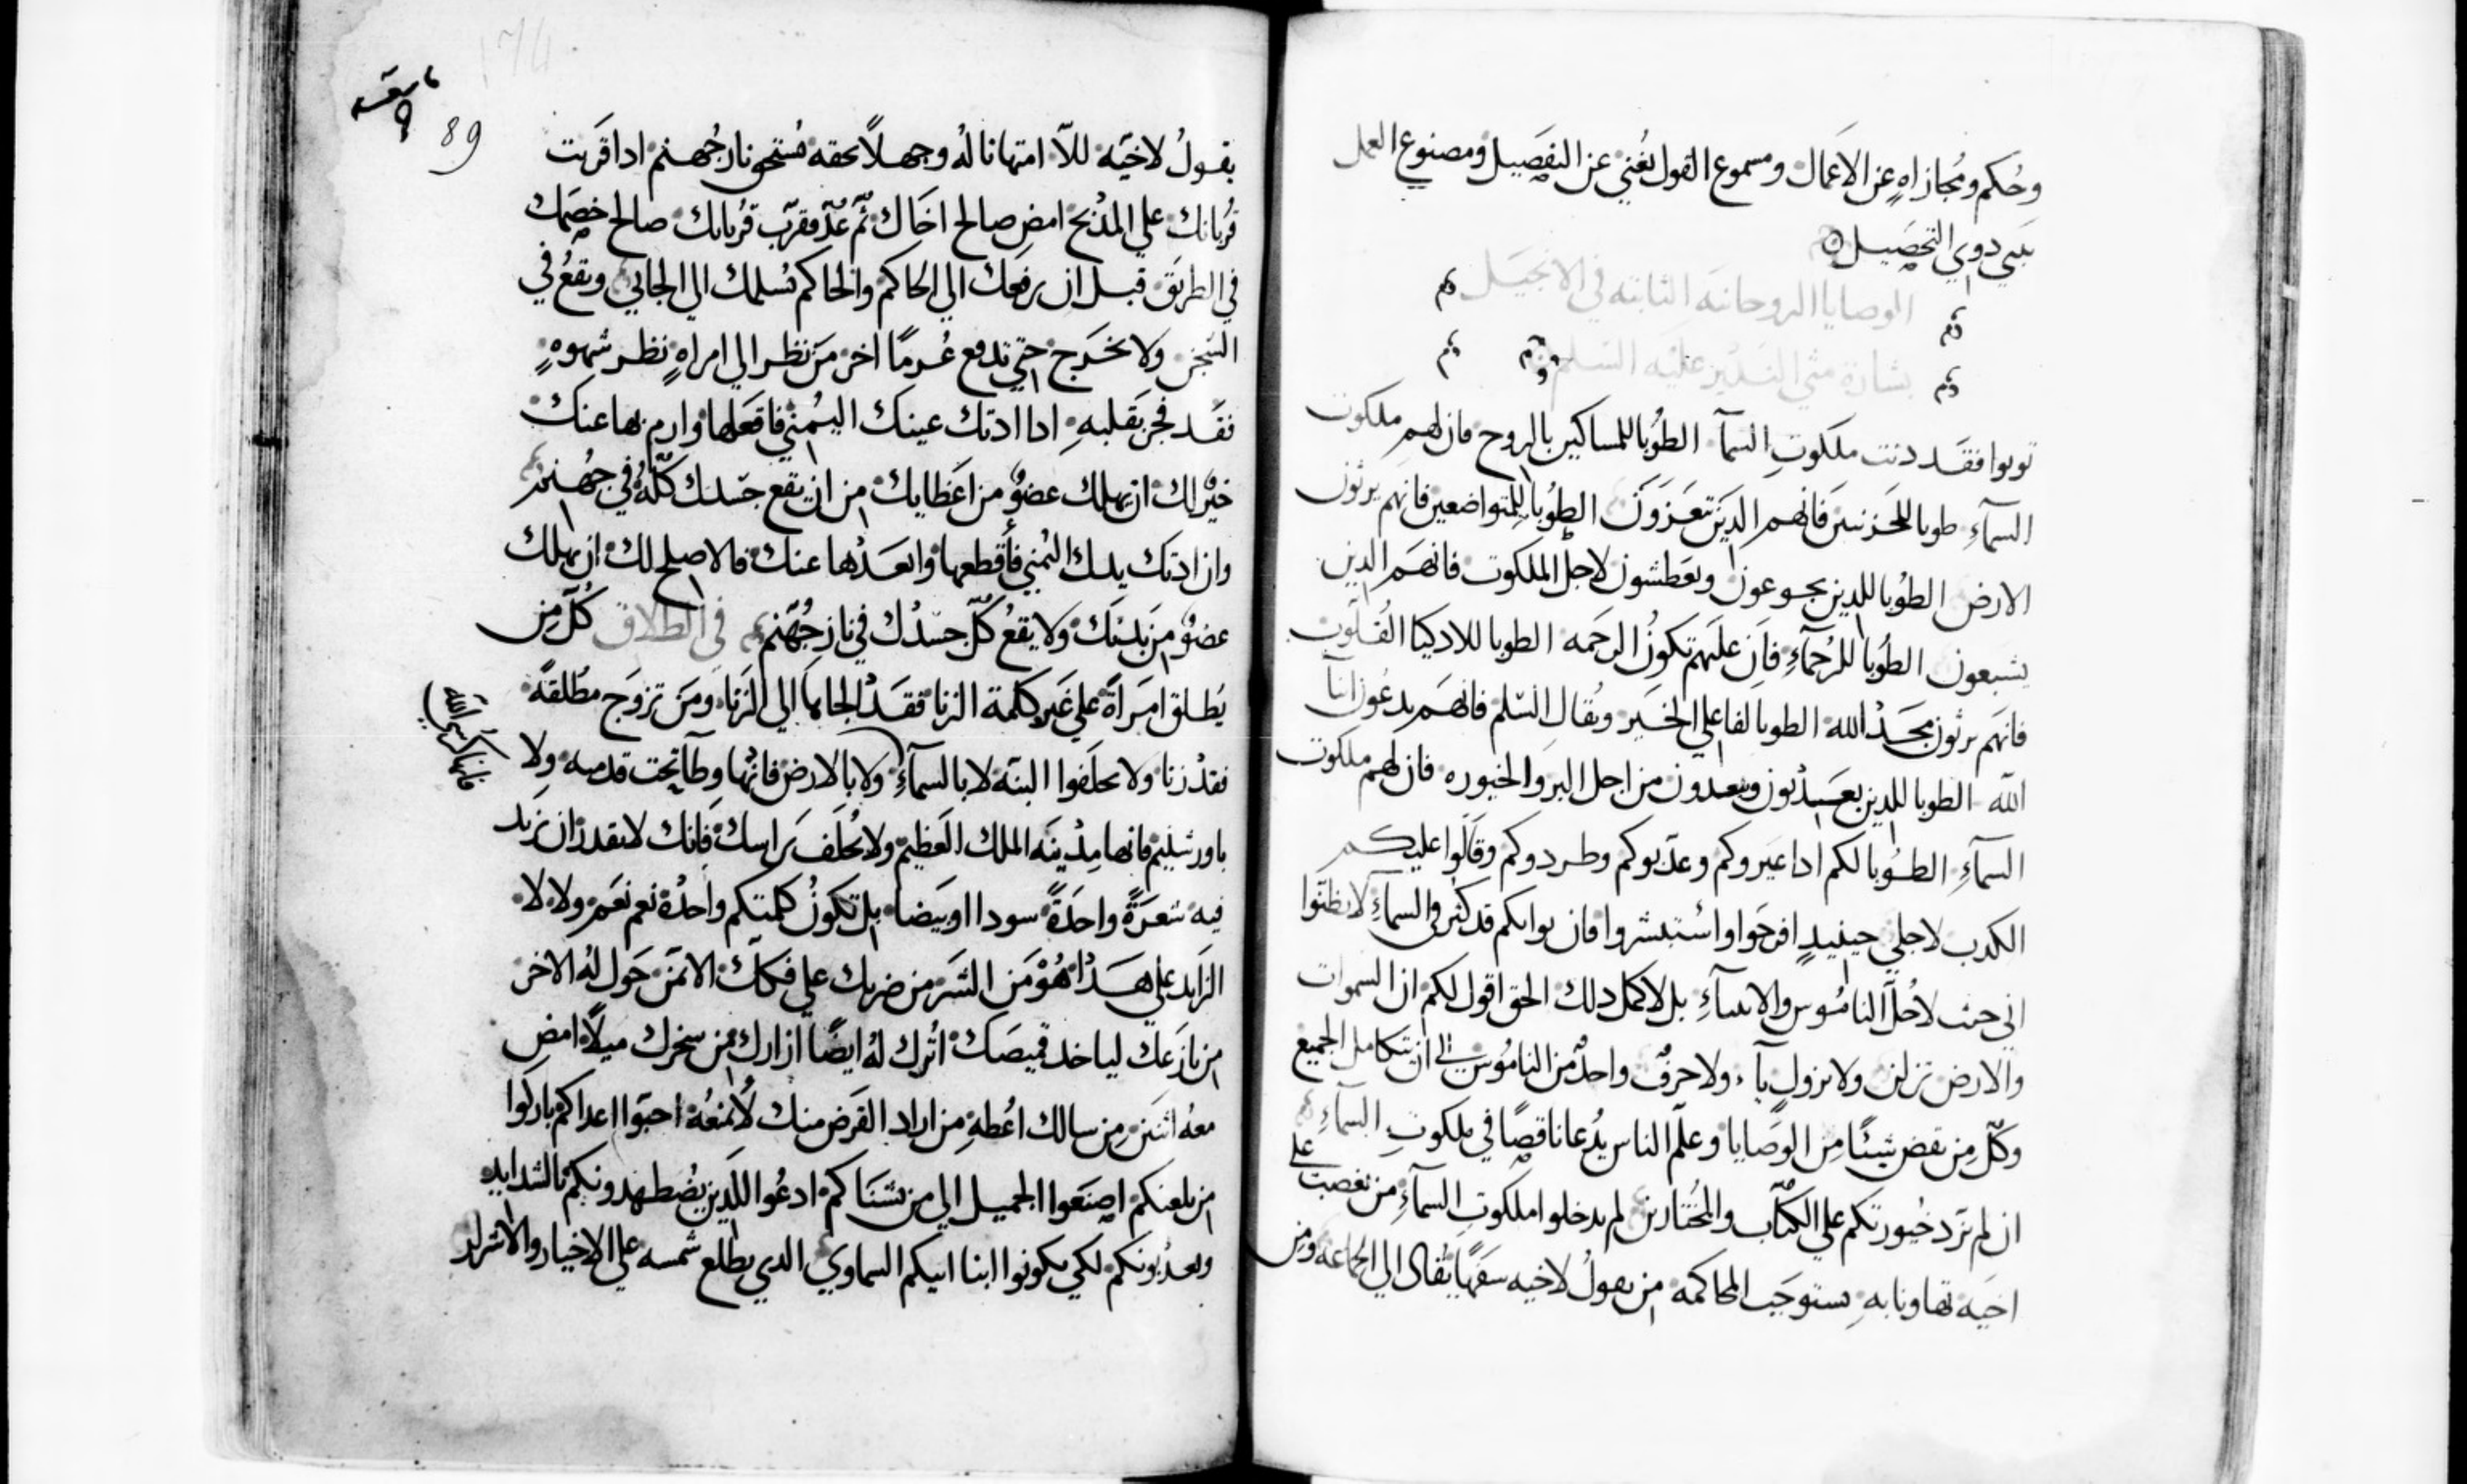 وحُكم ومُجازاهٍ عن الاعمال ومسموع القول يُغني عن التفصيل ومصنوع العمل
دوي التحصيل
الوصايا الروحانيه الثابته في الانجيل
بشارة متي عليه السلم
توبوا فقد دنت ملكوتِ السمآ الطُوبا للمساكين بالروح فان لهم ملكوت
السمآءِ طوبا للحزنين فانهم الدين يتعزون الطُوبا للمتواضعين فانهم يرثون
الارض الطوبا للدين يجوعون ويعطشون لاجل الملكوت فانهم الدين
يشبعون الطُوبا للرُحمآءِ فان عليهم تكون الرحمه الطوبا للادكيا القلوب
فانهم يرثون مجد الله الطوبا لفاعلي الخير ويُقال السّلم فانهم يدعُون ابنآ
الله الطوبا للدين يعدبون ويبعدون من اجل البر والخيوره فان لهم ملكوت
السمآءِ الطُوبا لكم ادا عيروكم وعدبوكم وطردوكم وقالوا عليكم
الكدب لاجلي حينيدٍ افرحوا واستبشروا فان توابكم قد كثر في السمآءِ لا تظنوا
اني جيت لاحُلّ الناموس والانبيآءِ بل لاكمل دلك الحق اقول لكم ان السموات
والارض تزلن ولا يزول يآء ولا حرفٌ واحدٌ من الناموس الي ان يتكامل الجميع
وكلّ من نقض شيئًا من الوصايا وعلّم الناس يُدعا ناقصًا في ملكوتِ السمآءِ
ان لم تزد خيورتكم علي الكُتّاب والمُختارين لم يدخلوا ملكوت السمآءِ من يغضب علي
اخيه تهاونا به يستوجب المحاكمه من يقولُ لاخيه سفهًا يُقال الي الجماعه ومن
89
يقولُ لاخيّه للاّ امتهانا لهُ وجهلاً بحقه يُستحق نار جُهنم ادا قربت
قُربانك علي المدبح امضِ صالح اخاك ثُم عُدّ وقرّب قُربانك صالح خصمك
في الطريق قبل ان يرفعك الي الحاكم والحاكم يُسلمك الي الجابي وتقعُ في
السّجن ولا تخرج حتي تدفع غُرمًا اخر من نظر الي امراهٍ نظر شهوهٍ
فقد فجر بقلبهِ ادا ادتك عينك اليُمني فاقعلها وارمِ بها عنك
خيرٌ لك ان يهلك عضوٌ من اعظايك من ان يقع جسدك كلّهُ في جهنم
وان ادتك يدك اليُمني فأقطعها وابعدها عنك فالاصلح لك ان يهلك
عضوٌ من بدنك ولا يقعُ كُلّ جسدُك في نار جُهنم في الطلاق كُلّ من
يُطلق امراةً علي غير كلمة الزنا فقد الجاها الي الزنا ومن تزوج مُطلقةً
فقد زنا ولا تحلفوا البتة لا بالسمآءِ ولا بالارض فانّها وطآ تحت قدميه ولا
فانها كرسي الله
باورشليم فانها مدينه الملك العظيم ولا تُحلف براسك فانك لا تقدر ان تزيد
فيه شعرةً واحدةً سودا او بيضا بل تكونُ كلمتكم واحدة نعم نعم ولا لا
الزايد علي هدا هُو من الشر من ضربك علي فكك الايمن حول لهُ الاخر
من نازعك لياخد قميصك اترك لهُ ايضًا ازارك من سخرك ميلاً امضِ
معهُ اثنين من سالك اعُطهِ من اراد القرض منك لا تمنعُه احبّوا اعداكم باركوا
من يلعنكم اصنعوا الجميل الي من يشناكم ادعُوا للدين يضُطهدونكم بالشدايد
ويعدبونكم لكي تكونوا ابنا ابيكم السماوي الدي يطلع شمسه علي الاخيار والاشرار